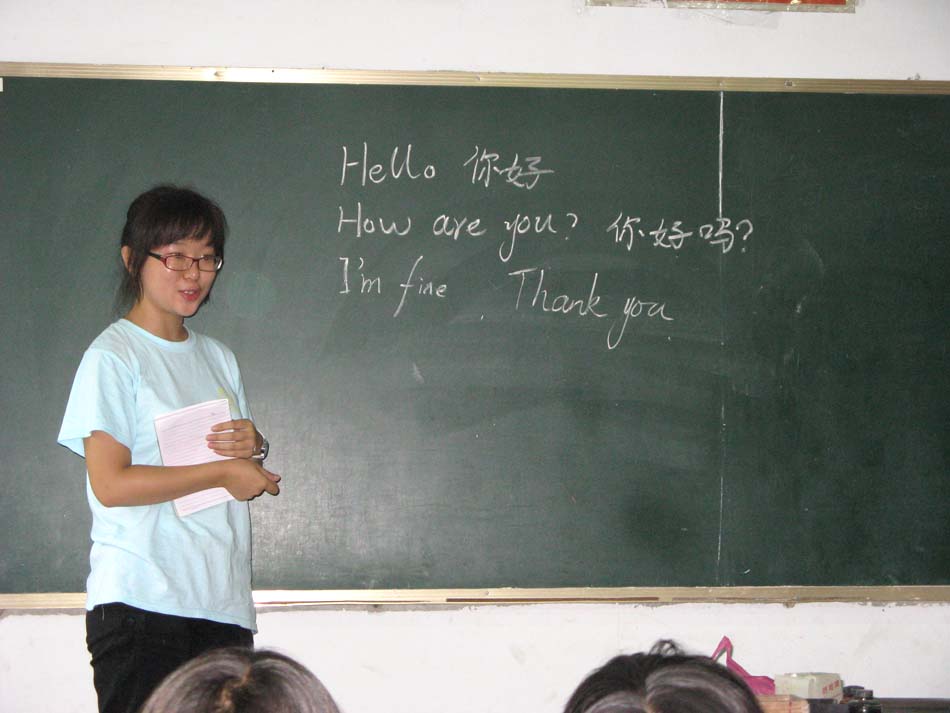 Hello 你好
How are you? 你好吗?
I'm fine Thank you